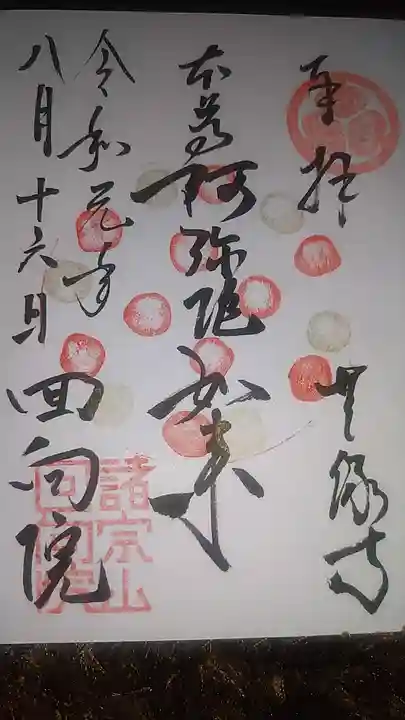 奉拝 無縁寺
本尊阿弥陀如来
令和元年
八月十六日
回向院
諸宗山
回向院